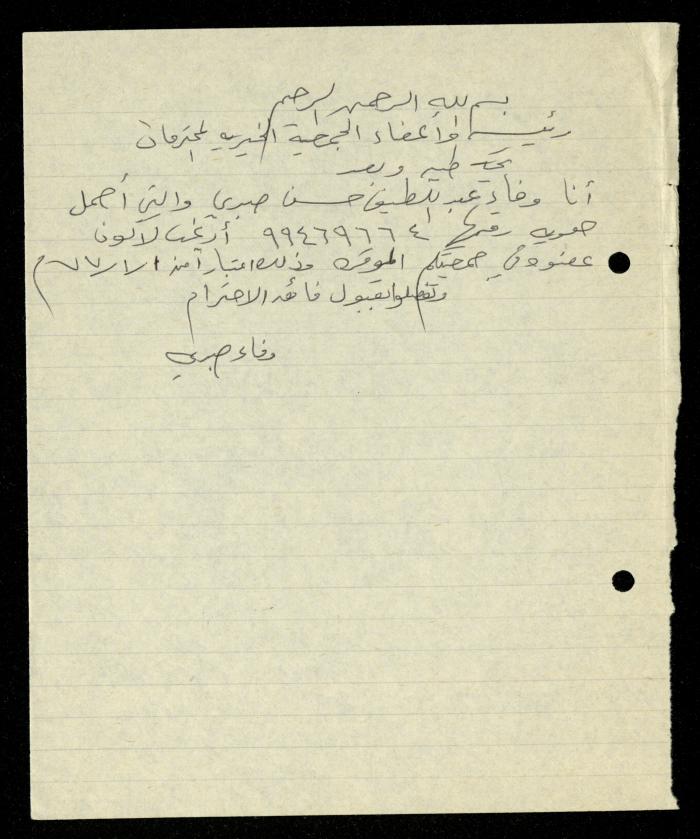 بسم الله الرحمن الرحيم
رئيسة وأعضاء الجمعية الخيرية المحترمات
تحية طيبة وبعد
أنا وفاء عبد اللطيف حسن صبري والتي أحمل
هوية رقمها ٩٩٤٦٩٦٦٤ أرغب لأكون
عضوة في جمعيتكم الموقرة وذلك اعتبارا من
وتفضلوا بقبول فائق الاحترام
وفاء صبري